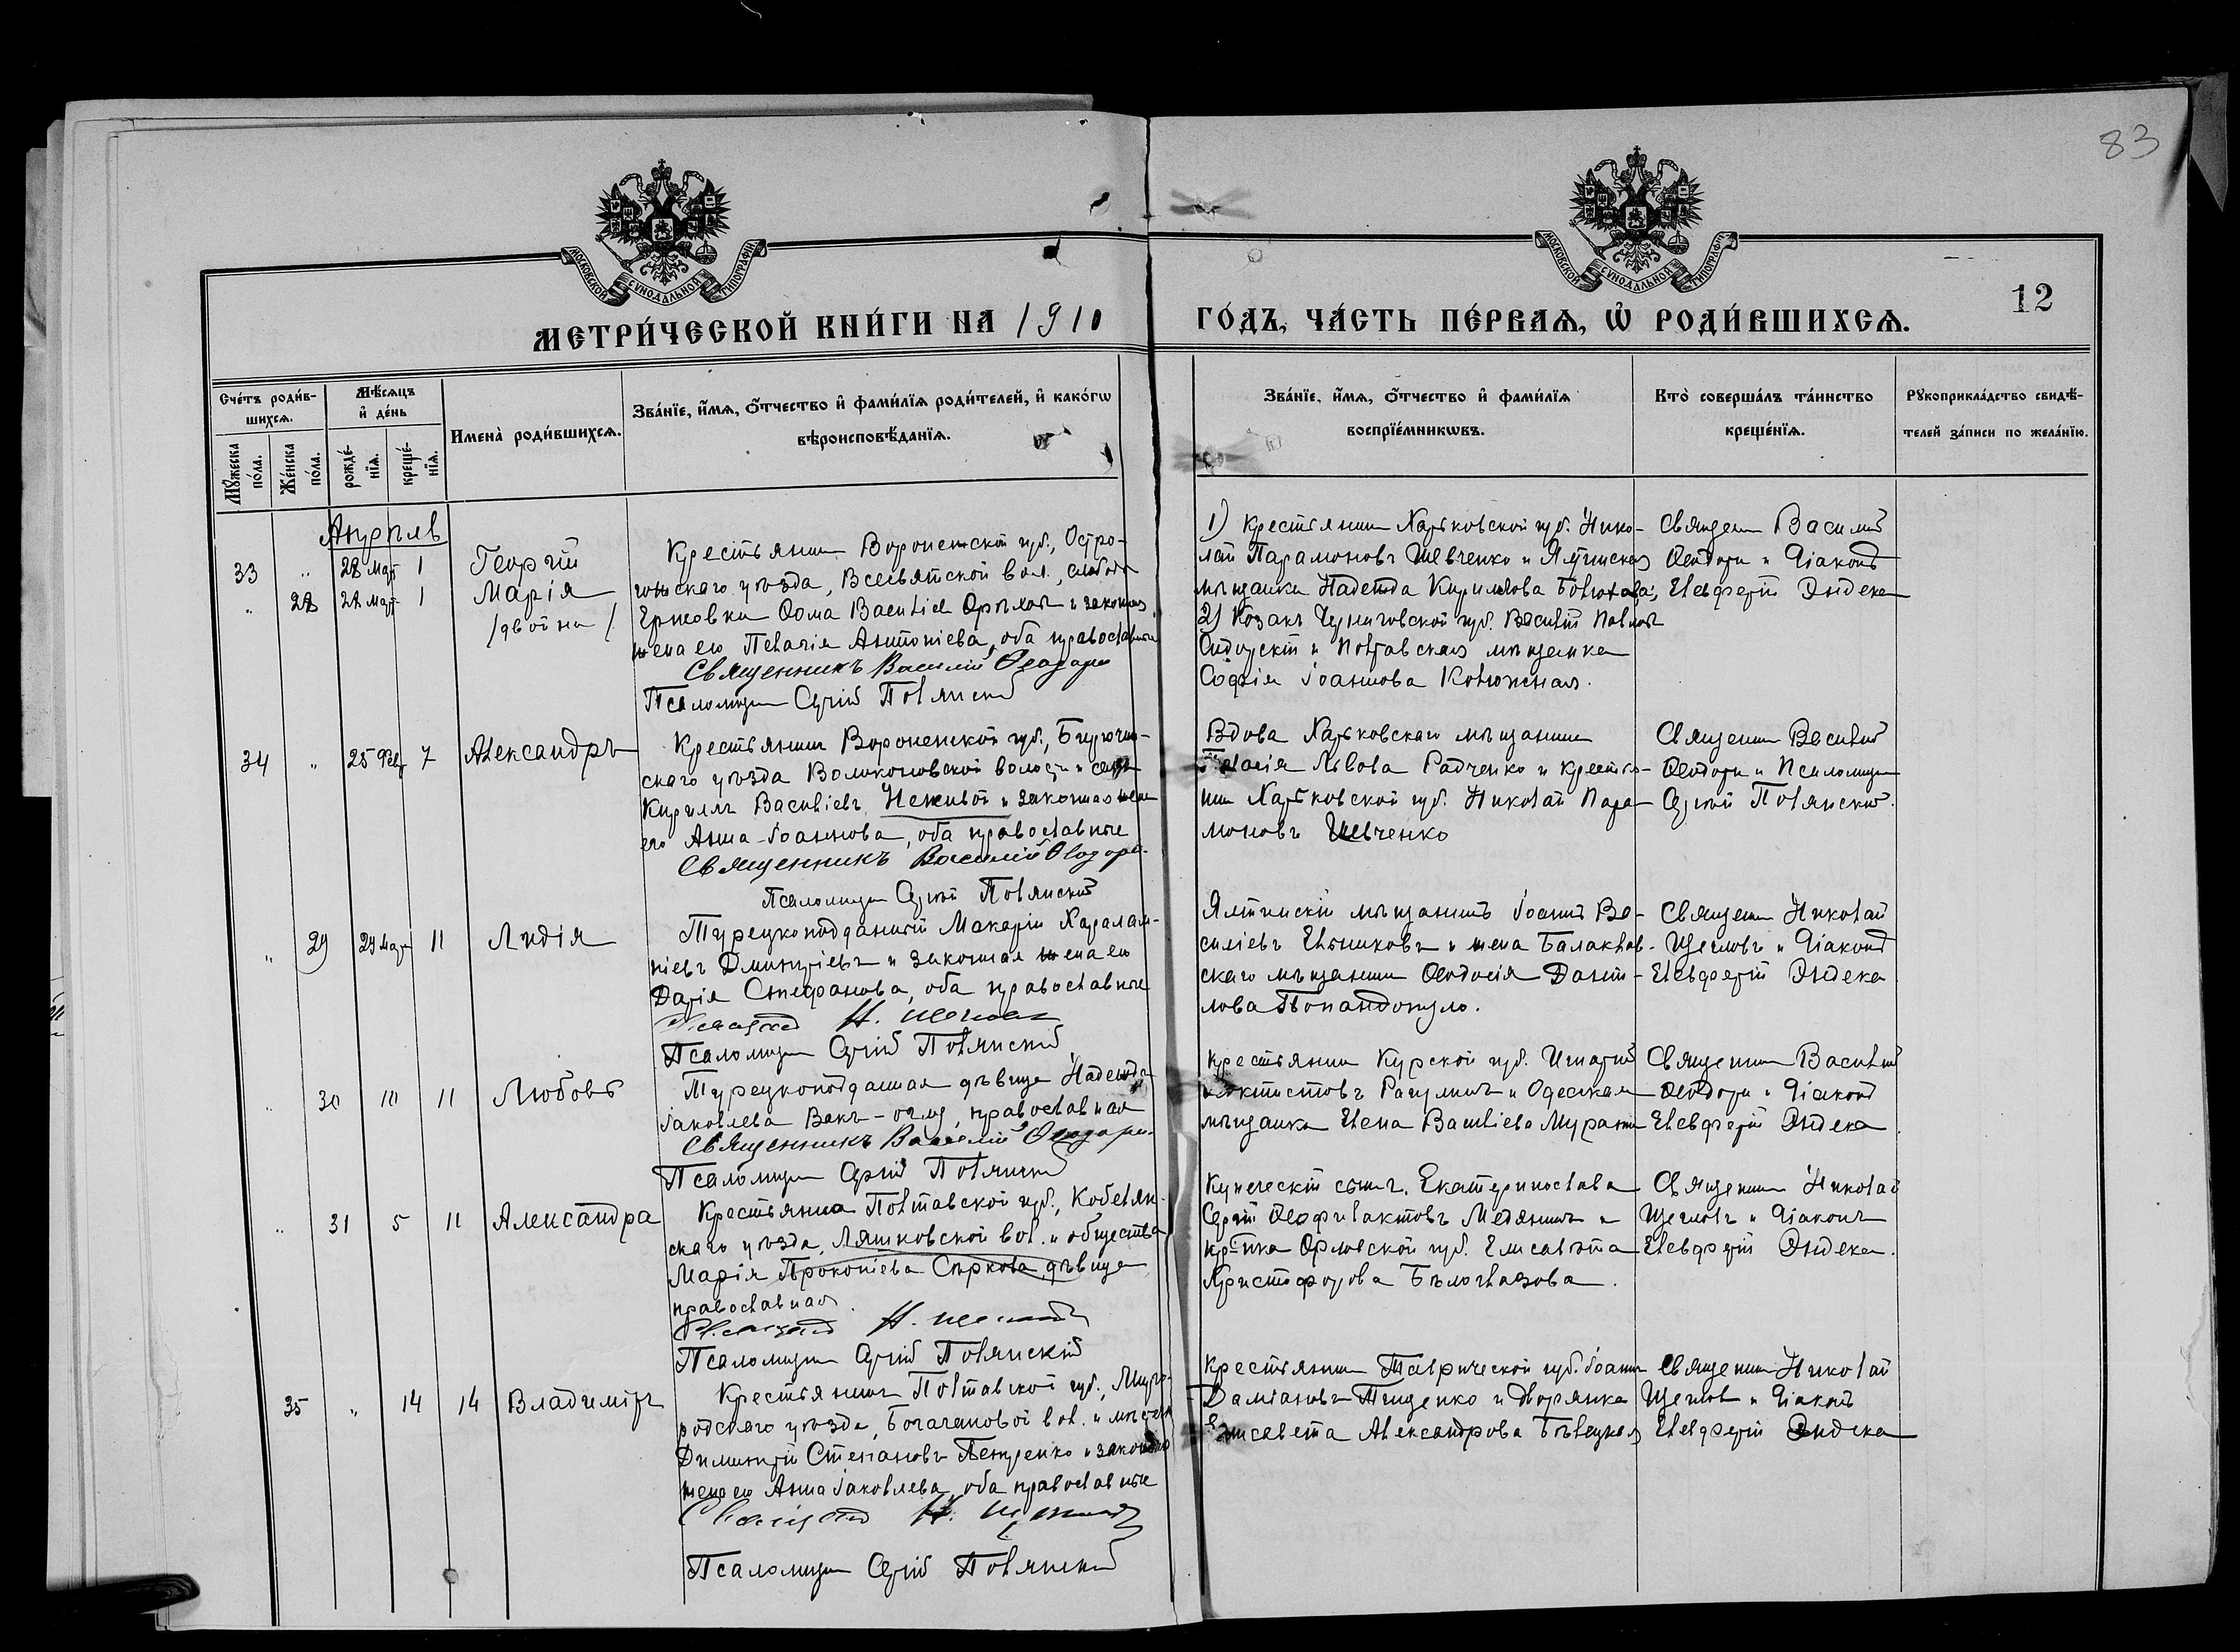 83
МОСКОВСКОЙ СУНОДАЛЬНОЙ ТИПОГРАФИИ
МОСКОВСКОЙ СУНОДАЛЬНОЙ ТИПОГРАФИИ
12
МЕТРИ́ЧЕСКОЙ КНИ́ГИ НА 1910 ГО́ДЪ, ЧА́СТЬ ПЕ́РВАѦ, Ѡ РОДИ́ВШИХСѦ.
Сче́тъ роди́в-
шихсѧ.
Мꙋжеска
по́ла.
Же́нска
по́ла.
Мѣ́сѧцъ
и҆ де́нь
рожде́-
нїѧ.
креще́-
нїѧ.
Имена̀ роди́вшихсѧ.
Зва́нїе, и҆́мѧ, ѻ҆́тчество и҆ фами́лїѧ роди́телей, и҆ како́гѡ
вѣроисповѣ́данїѧ.
Зва́нїе, и҆́мѧ, ѻ҆́тчество и҆ фами́лїѧ
воспрїе́мникѡвъ.
Кто̀ соверша́лъ та́инство
креще́нїѧ.
Рꙋкоприкла́дство свидѣ́-
телей за́писи по жела́нїю.
Апрѣль
33 " 28 Мар 1 Георгій
" 28 28 Мар 1 Марія
/двойни/
Крестьянин Воронежской губ., Остро-
гожскаго уѣзда, Всесвятской вол., слободы
Ѳома Василіев и законная
жена его Пелагія Антоніева, оба православные
Священникъ Василій
Псаломщик Сергій Полянский
1) Крестьянин Харьковской губ. Нико-
лай Парамоновъ Шевченко и Ялтинская
мѣщанка Надежда Кириллова
2) Козакъ Черниговской губ. Василій Павлов
и Полтавская мѣщанка
Софія Іоаннова Колюжная.
Священ Василій
Ѳеодори и Діаконъ
Елевферій Эндека
34 " 25 Фев 7 Александръ
Крестьянин Воронежской губ., Бирючин-
скаго уѣзда Волоконовской волости и села
Кириллъ Василіевъ Неживой и законная жена
его Анна Іоаннова, оба православные
Священникъ Василій
Псаломщик Сергій Полянский
Вдова Харьковскаго мѣщанина
Львова Радченко и крестья-
нин Харьковской губ. Николай Пара-
моновъ Шевченко
Священник Василий
Ѳеодори и Псаломщик
Сергій Полянский.
" 29 29 Мар 11 Лидія
Турецкоподданный Макарій Харалам-
піевъ Димитріевъ и законная жена его
Дарія Стефанова, оба православные
Н. Щеглов
Псаломщик Сергій Полянский
Ялтинскій мѣщанинъ Іоаннъ Ва-
силіевъ и жена Балаклав-
скаго мѣщанина Ѳеодосія
лова Попандопуло.
Священ Николай
Щегловъ и Діаконъ
Елевферій Эндека
" 30 11 Любовь
Турецкоподданная дѣвица Надежда
Іаковлева, православная
Священникъ Василій
Псаломщик Сергій Полянский
Крестьянин Курской губ. Игнатий
и Одесская
мѣщанка Елена Василіева
Священник Василий
Ѳеодори и Діаконъ
Елевферій Эндека
" 31 5 11 Александра
Крестьянка Полтавской губ., Кобеляк-
скаго уѣзда, Ляшковской вол. и общества
Марія Прокопіева Сѣркова, дѣвица
православная.
Н. Щеглов
Псаломщик Сергій Полянскій
Купеческій сынъ г. Екатеринослава
Сергій Ѳеофилактовъ Медянинъ и
кр-нка Орловской губ. Елисавета
Христофорова Бѣлоглазова.
Священник Николай
Щегловъ и Діаконъ
Елевферій Эндека.
35 " 14 14 Владиміръ
Крестьянинъ Полтавской губ., Мирго-
родскаго уѣзда, Богачковой вол. и мѣстеч
Димитрій Степановъ Петренко и законная
жена его Анна Іаковлева, оба православные
Н. Щеглов
Псаломщик Сергій Полянский
Крестьянин Таврической губ. Іоанн
Даміановъ Тищенко и дворянка
Елисавета Александрова Бѣлецкая
Священник Николай
Щеглов и Діаконъ
Елевферій Эндека